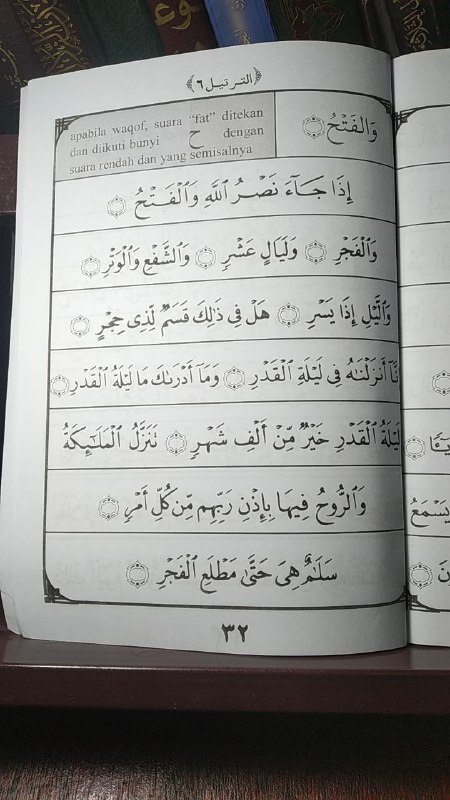 ﴿الترتيل ٦﴾
وَالْفَتْحُ ۝
apabila waqof, suara “fat” ditekan
dan diikuti bunyi حْ dengan
suara rendah dan yang semisalnya
إِذَا جَآءَ نَصْرُ اللَّهِ وَالْفَتْحُ ۝
وَالْفَجْرِ ۝ وَلَيَالٍ عَشْرٍ ۝ وَالشَّفْعِ وَالْوَتْرِ ۝
وَالَّيْلِ إِذَا يَسْرِ ۝ هَلْ فِى ذَٰلِكَ قَسَمٌ لِّذِى حِجْرٍ ۝
نَّآ أَنزَلْنَٰهُ فِى لَيْلَةِ الْقَدْرِ ۝ وَمَآ أَدْرَىٰكَ مَا لَيْلَةُ الْقَدْرِ ۝
لَيْلَةُ الْقَدْرِ خَيْرٌ مِّنْ أَلْفِ شَهْرٍ ۝ تَنَزَّلُ الْمَلَٰٓئِكَةُ
وَالرُّوحُ فِيهَا بِإِذْنِ رَبِّهِم مِّن كُلِّ أَمْرٍ ۝
سَلَٰمٌ هِىَ حَتَّىٰ مَطْلَعِ الْفَجْرِ ۝
٣٢
يَسْمَعُ